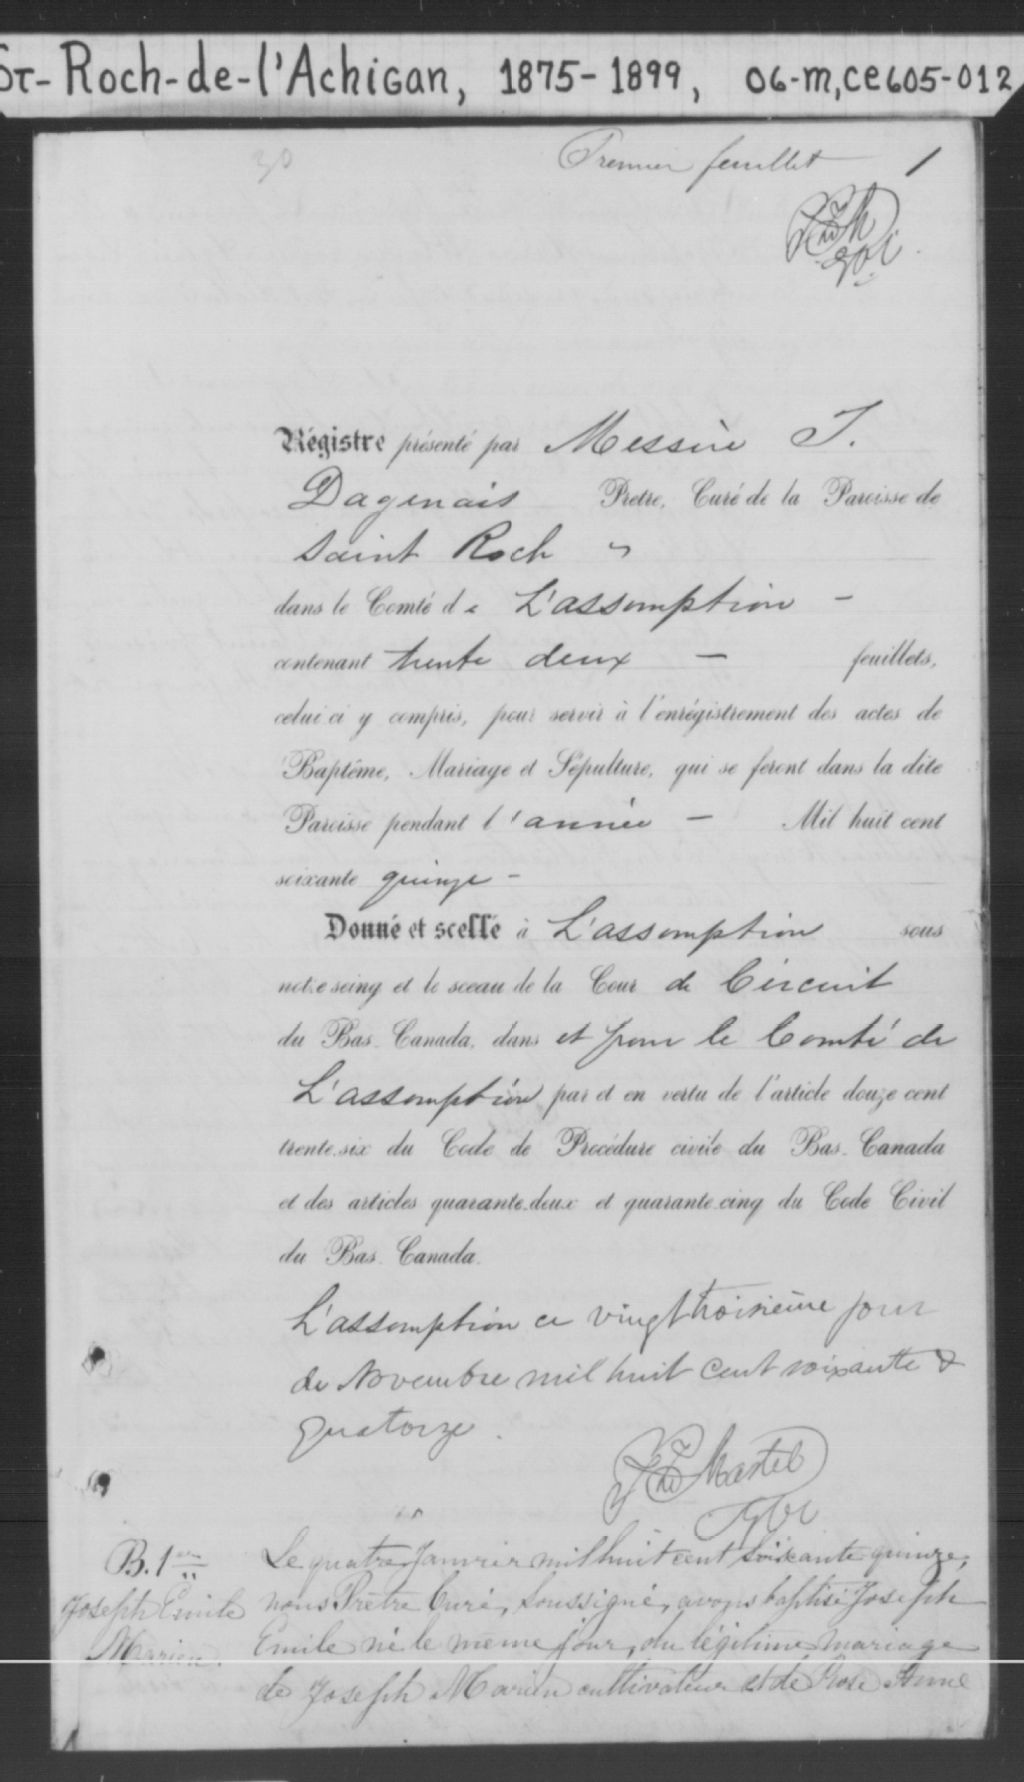 St-Roch-de-l'Achigan, 1875-1899, 06-M,CE605-012
30
Premier feuillet 1
Régistre présenté par Messire T.
Dagenais Prêtre, Curé de la Paroisse de
Saint Roch
dans le Comté de L'assomption -
contenant trente deux - feuillets,
celui ci y compris, pour servir à l'enrégistrement des actes de
Baptême, Mariage et Sépulture, qui se feront dans la dite
Paroisse pendant l'année - Mil huit cent
soixante quinze -
Donné et scellé à L'assomption sous
notre seing et le sceau de la Cour de Circuit
du Bas-Canada, dans et pour le Comté de
L'assomption par et en vertu de l'article douze cent
trente-six du Code de Procédure civile du Bas-Canada
et des articles quarante-deux et quarante-cinq du Code Civil
du Bas-Canada.
L'assomption ce vingt troisième jour
de Novembre mil huit cent soixante &
quatorze.
Martel
B. 1
Joseph Emile
Marien.
Le quatre Janvier mil huit cent soixante quinze,
nous Prêtre Curé, soussigné, avons baptisé Joseph
Emile né le meme jour, du légitime mariage
de Joseph Marien cultivateur et de Rose Anne